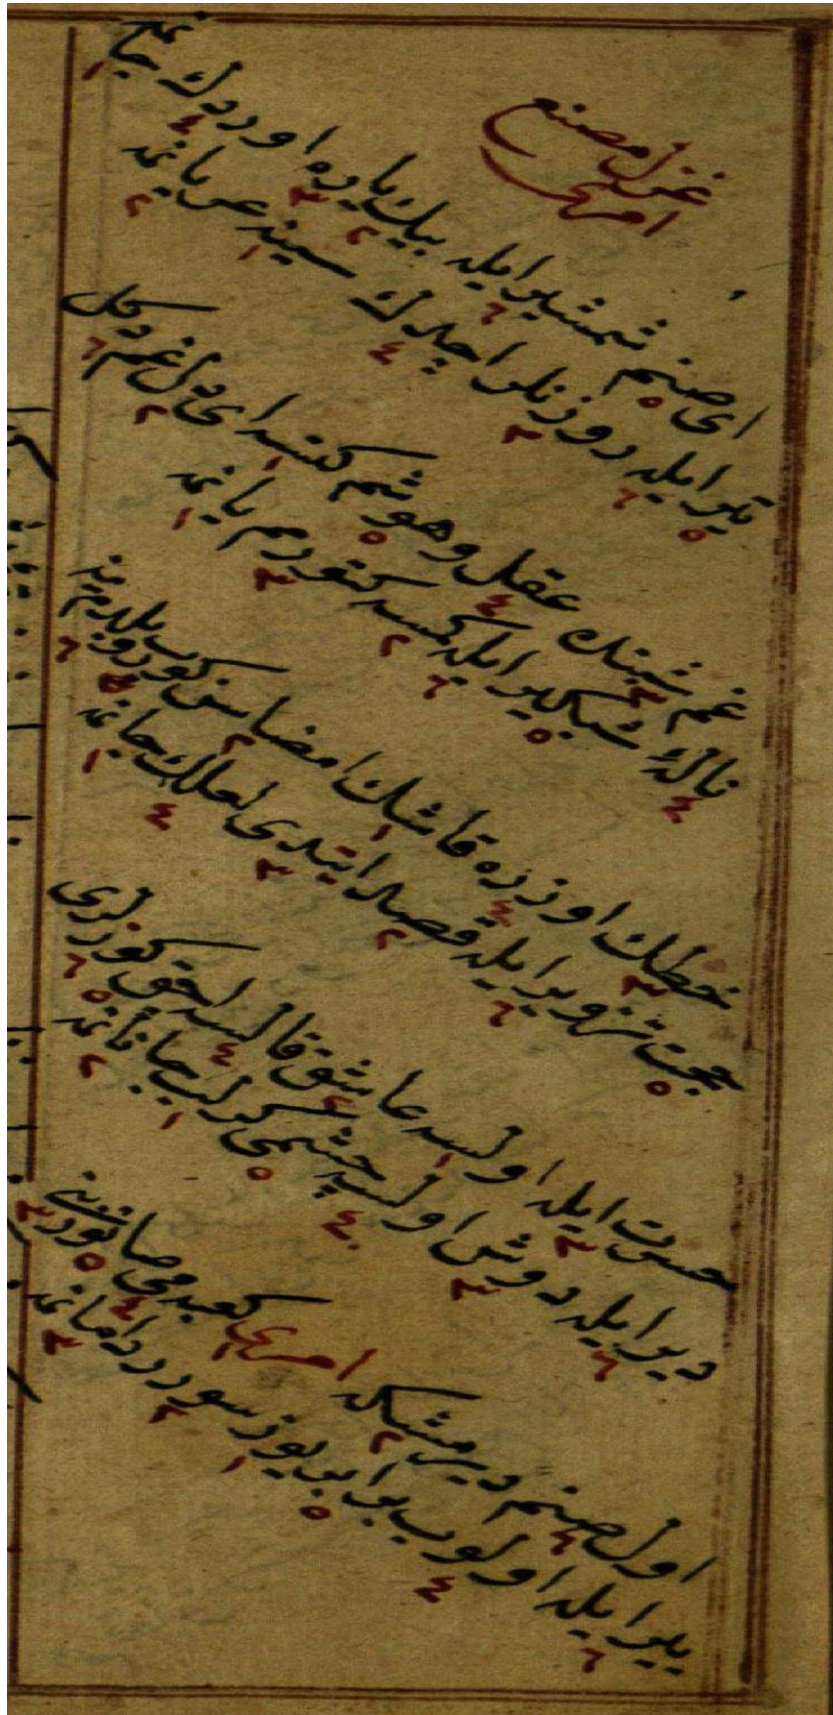 غزل مصنع
امری
ای صنم شمشیر ایله بیك یاره اوردك جانمه
تیر ایله روزنلر اچدك سینهٔ عریانمه
غم شبنك عقل و هوشم کتسه ای دل غم دکل
نالهٔ شبکیر ایله کمسه کتوردم یانمه
خطك اوزره قاشك امضاسن کوروب بلدم ینه
حجت تزویر ایله قصد ایتدی لعلك جانمه
حسرت ایله اولسه عاشق قالسه اچق کوزلری
دیر ایله دوش اولسه چشمی کرلب جانانمه
اول صنم دیرمشکه امری کعبه می صانور بنی
بیر ایله اولوب بو ابر یوز سورر دامانمه